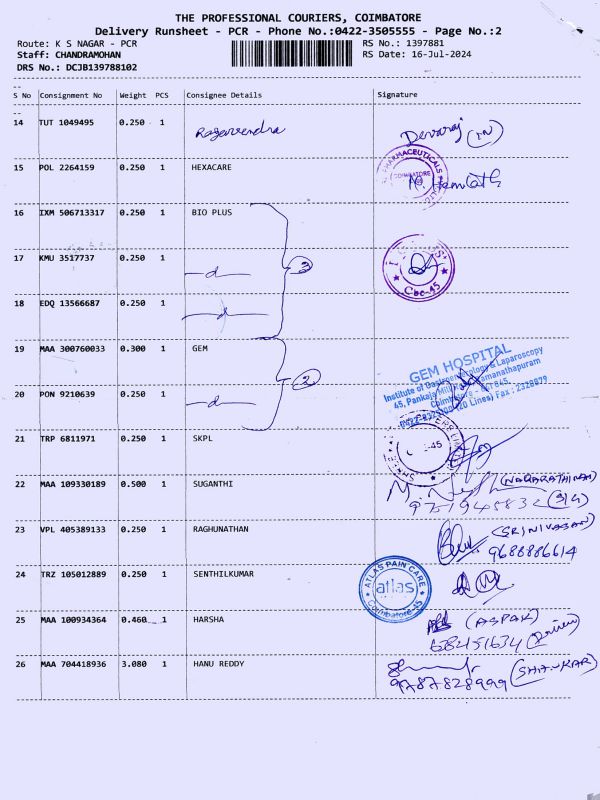 THE PROFESSIONAL COURIERS, COIMBATORE
Delivery Runsheet - PCR - Phone No.:0422-3505555 - Page No.:2
Route: K S NAGAR - PCR RS No.: 1397881
Staff: CHANDRAMOHAN RS Date: 16-Jul-2024
DRS No.: DCJB139788102
S No Consignment No Weight PCS Consignee Details Signature
14 TUT 1049495 0.250 1 Ragavendra Devaraj (IN)
15 POL 2264159 0.250 1 HEXACARE
PHARMACEUTICALS
COIMBATORE
M. Hemlath
16 IXM 506713317 0.250 1 BIO PLUS
17 KMU 3517737 0.250 1 -d- 3
Cbe-45
18 EDQ 13566687 0.250 1 -d-
19 MAA 300760033 0.300 1 GEM
GEM HOSPITAL
Institute of Gastroenterology & Laparoscopy
45, Pankaja Mill Road, Ramanathapuram
20 PON 9210639 0.250 1 -d- 2
Coimbatore - 641 045.
(20 Lines) Fax : 2320879
21 TRP 6811971 0.250 1 SKPL
22 MAA 109330189 0.500 1 SUGANTHI (NAGARATHINAM)
9751945832 (S/G)
23 VPL 405389133 0.250 1 RAGHUNATHAN (SRINIVASAN)
9688886614
24 TRZ 105012889 0.250 1 SENTHILKUMAR
ATLAS PAIN CARE
atlas
Coimbatore-45
25 MAA 100934364 0.460 1 HARSHA (ASPAK)
6384151634 (Driver)
26 MAA 704418936 3.080 1 HANU REDDY (SHANKAR)
9787828999